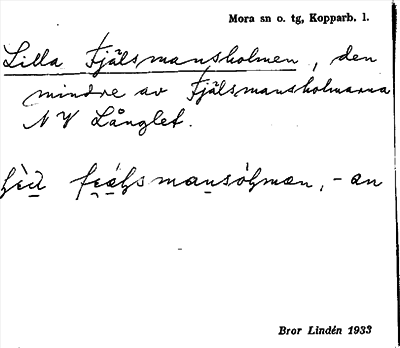 Mora sn o. tg, Kopparb. l.
Lilla Fjälsmansholmen, den
mindre av Fjälsmansholmarna
NV Långlet.
-an
Bror Lindén 1933